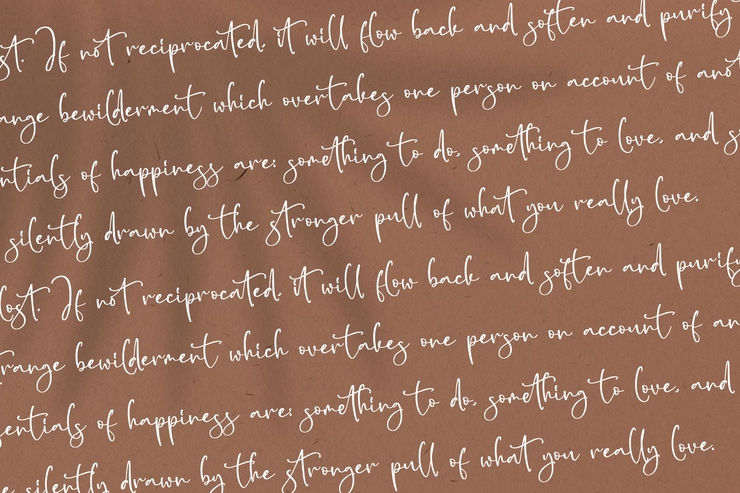 st. If not reciprocated, it will flow back and soften and purify
ange bewilderment which overtakes one person on account of anot
ntials of happiness are: something to do, something to love, and s
silently drawn by the stronger pull of what you really love.
lost. If not reciprocated, it will flow back and soften and purify
range bewilderment which overtakes one person on account of an
sentials of happiness are: something to do, something to love, and
e silently drawn by the stronger pull of what you really love.